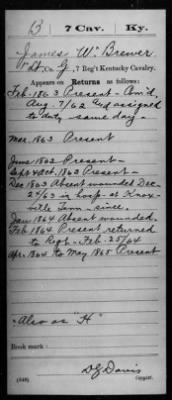 B | 7 Cav. | Ky.
James W. Brewer
Pvt., Co. G, 7 Reg't Kentucky Cavalry.
Appears on Returns as follows:
Feb. 1863 Present - Com'd
Aug. 7/62 and assigned
to duty same day -
Mar. 1863 Present
June 1863 Present -
Sept & Oct. 1863 Present -
Dec 1863 Absent wounded Dec
24/63 in hosp- at Knox-
ville Tenn - since.
Jan 1864 Absent wounded.
Feb 1864 Present returned
to Regt - Feb - 25/64
Apr. 1864 to May 1865 Present
"Also as "H"
Book mark:
(546)
D.J. Davis
Copyist.